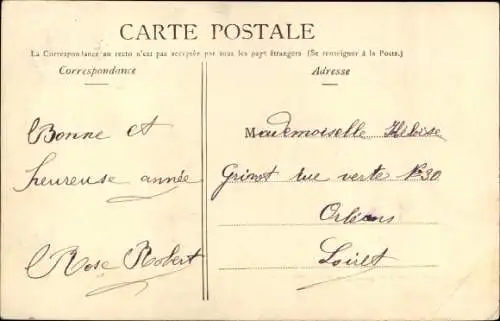 CARTE POSTALE
La Correspondance au recto n'est pas acceptée par tous les pays étrangers (Se renseigner à la Poste.)
Correspondance
Bonne et
heureuse année
Rose Robert
Adresse
Mademoiselle Héloïse
Grinot rue verte No 30
Orléans
Loiret